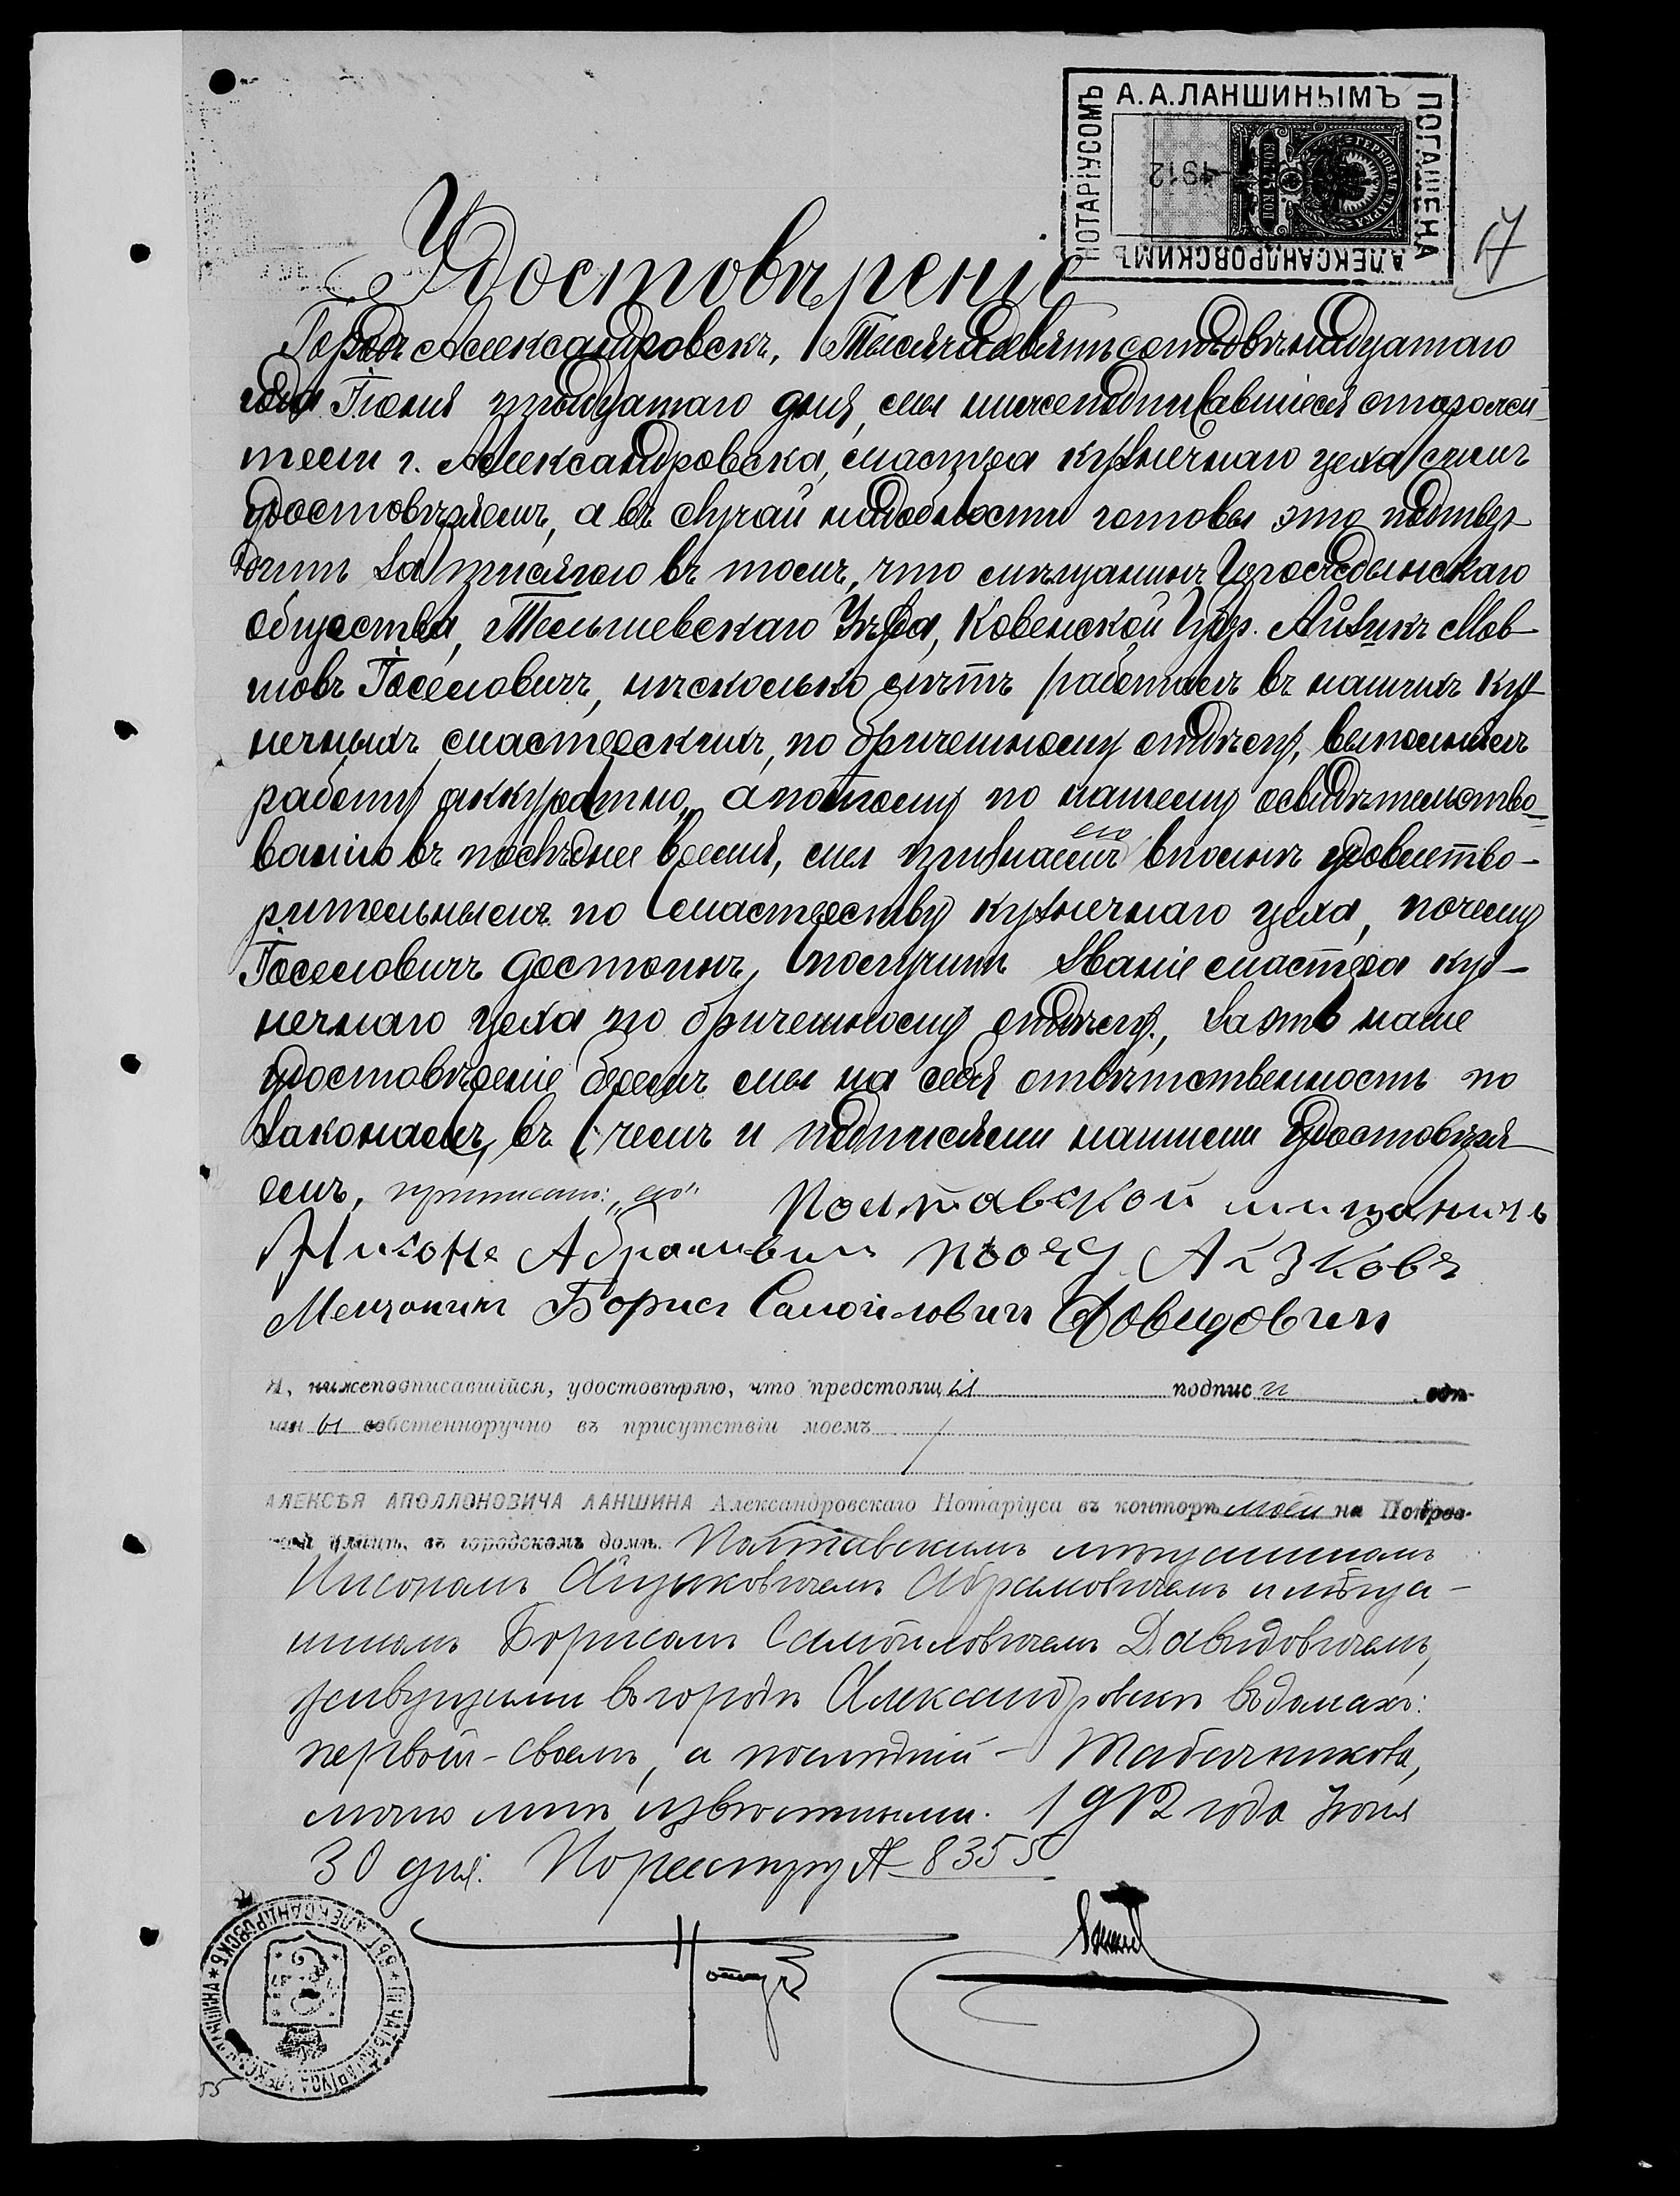 А. А. ЛАНШИНЫМЪ
ПОГАШЕНА
НОТАРІУСОМЪ
АЛЕКСАНДРОВСКИМЪ
ГЕРБОВАЯ МАРКА
1912
17
Удостовѣреніе
Городъ Александровскъ, Тысяча девятьсотъ двѣнадцатаго
года Іюня тридцатаго дня, мы нижеподписавшіеся старожи-
тели г. Александровска, мастера кузнечнаго цеха симъ
удостовѣряемъ, а въ случаи надобности готовы это подтвер-
дить за присягою въ томъ, что мѣщанинъ
общества, Тельшевскаго Уѣзда, Ковенской Губ. Айзикъ Мов-
шовъ Іоселовичъ, нѣсколько лѣтъ работалъ въ нашихъ куз-
нечныхъ мастерскихъ, по бричешному отдѣлу, выполнялъ
работу аккуратно, а потому по нашему освидѣтельство-
ванію въ послѣднее время, мы признаемъ его вполнѣ удовлетво-
рительнымъ по мастерству кузнечнаго цеха, почему
Іоселовичъ достоинъ, получить званіе мастера куз-
нечнаго цеха по бричешному отдѣлу, За это наше
удостовѣреніе беремъ мы на себя отвѣтственность по
законамъ, въ чемъ и подписями нашими удостовѣря-
емъ, приписано: "его" Полтавской мищанинъ
Абрамович Айзковъ
Мещонинъ Борисъ Самойловичъ Довидович
Я, нижеподписавшійся, удостовѣряю, что предстоящія подписи
ны собственноручно въ присутствіи моемъ
АЛЕКСѢЯ АПОЛЛОНОВИЧА ЛАНШИНА Александровскаго Нотаріуса въ конторѣ моей на Покров-
ской улицѣ, въ городскомъ домѣ. Полтавскимъ мѣщаниномъ
Нисономъ Айзиковичемъ Абрамовичемъ и мѣща-
ниномъ Борисомъ Самойловичемъ Давидовичемъ,
живущими въ городѣ Александровскѣ въ домахъ:
первый - своемъ, а послѣдній - Табачникова,
лично мнѣ извѣстными. 1912 года Іюня
30 дня. По реестру № 8355
Нотаріусъ